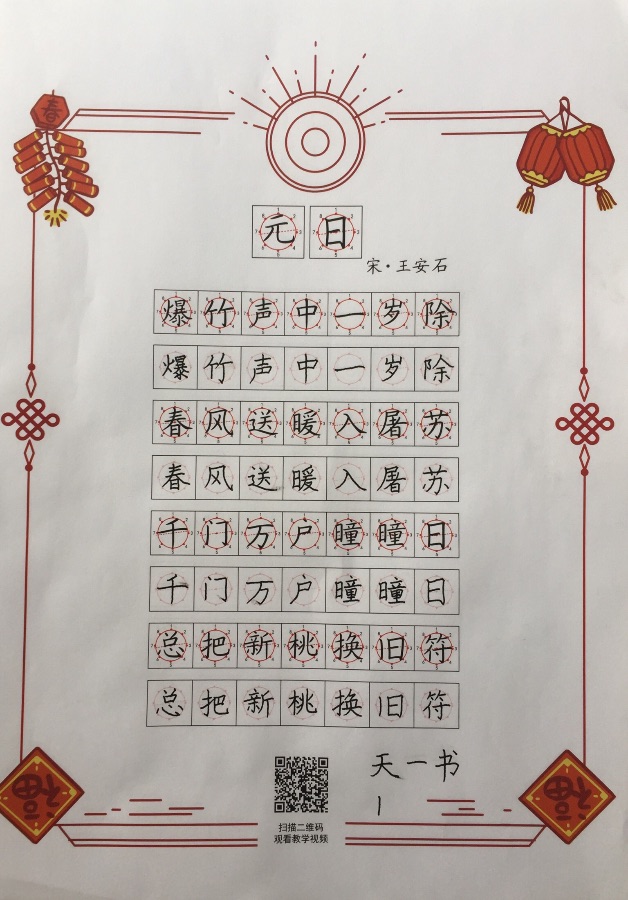 春
元日
宋·王安石
爆竹声中一岁除
爆竹声中一岁除
春风送暖入屠苏
春风送暖入屠苏
千门万户曈曈日
千门万户曈曈日
总把新桃换旧符
总把新桃换旧符
天一书
福
福
扫描二维码
观看教学视频